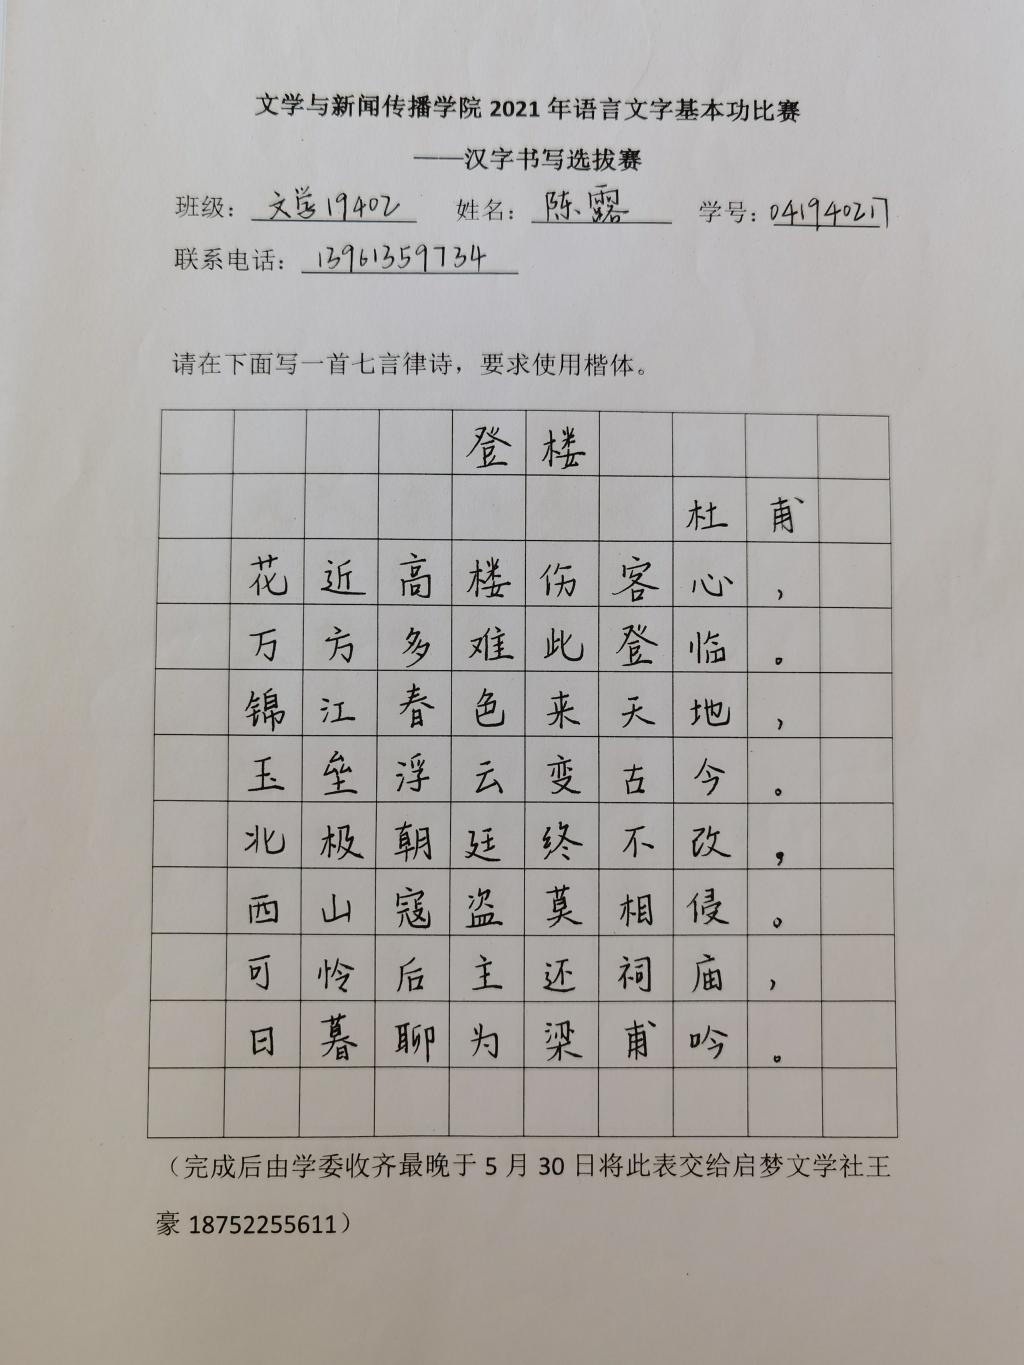 文学与新闻传播学院 2021 年语言文字基本功比赛
——汉字书写选拔赛
班级：文学19402 姓名：陈露 学号：041940217
联系电话：13961359734
请在下面写一首七言律诗，要求使用楷体。
登楼
杜甫
花近高楼伤客心，
万方多难此登临。
锦江春色来天地，
玉垒浮云变古今。
北极朝廷终不改，
西山寇盗莫相侵。
可怜后主还祠庙，
日暮聊为梁甫吟。
（完成后由学委收齐最晚于 5 月 30 日将此表交给启梦文学社王
豪 18752255611）